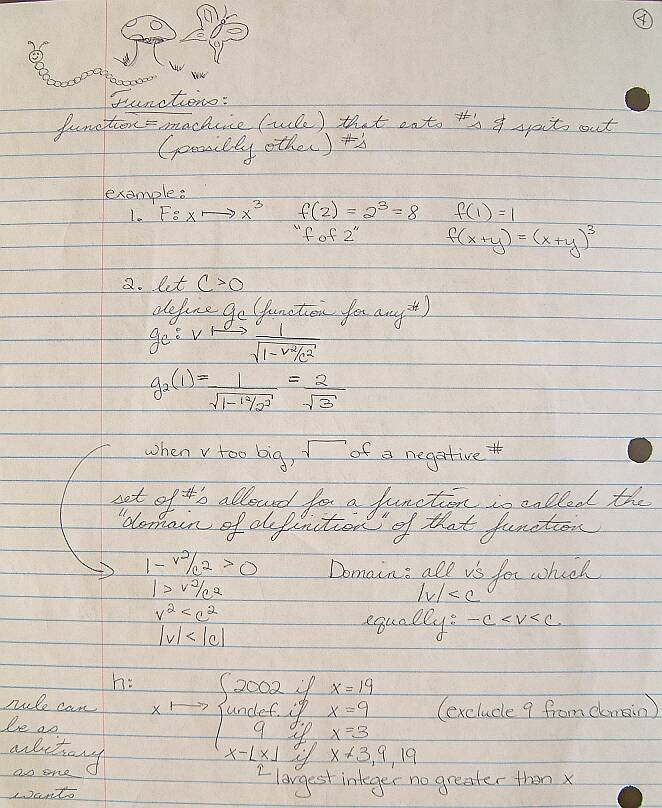 4
Functions:
function = machine (rule) that eats #'s & spits out
(possibly other) #'s
example:
1. F: x ↦ x³ f(2) = 2³ = 8 f(1) = 1
"f of 2" f(x+y) = (x+y)³
2. let C > 0
define g_c (function for any #)
g_c : v ↦ 1/√(1-v²/c²)
g₂(1) = 1/√(1-1²/2²) = 2/√3
when v too big, √ of a negative #
set of #'s allowed for a function is called the
"domain of definition" of that function
1 - v²/c² > 0 Domain: all v's for which
1 > v²/c² |v| < c
v² < c² equally: -c < v < c
|v| < |c|
h:
x ↦ { 2002 if x = 19
undef. if x = 9 (exclude 9 from domain)
9 if x = 3
x - ⌊x⌋ if x ≠ 3, 9, 19
largest integer no greater than x
rule can
be as
arbitrary
as one
wants